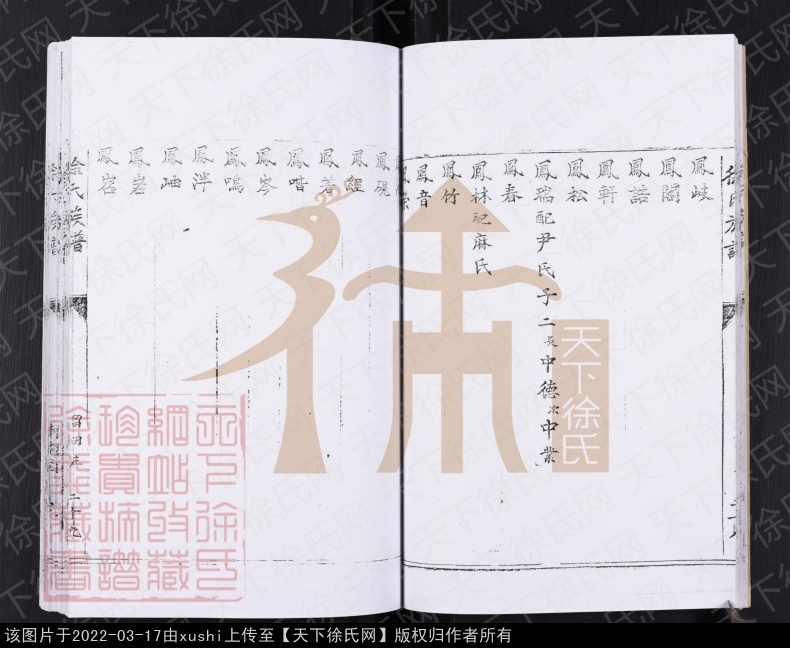 徐氏族譜
鳳岐
鳳閣
鳳誥
鳳軒
鳳松
鳳瑞配尹氏子二長中德次中業
鳳春
鳳林配麻氏
鳳竹
鳳音
鳳硯
鳳經
鳳著
鳳喈
鳳岑
鳳鳴
鳳泮
鳳岫
鳳岩
鳳岩
徐氏族普
二十九
天下徐氏
天下徐氏网
该图片于2022-03-17由xushi上传至【天下徐氏网】版权归作者所有